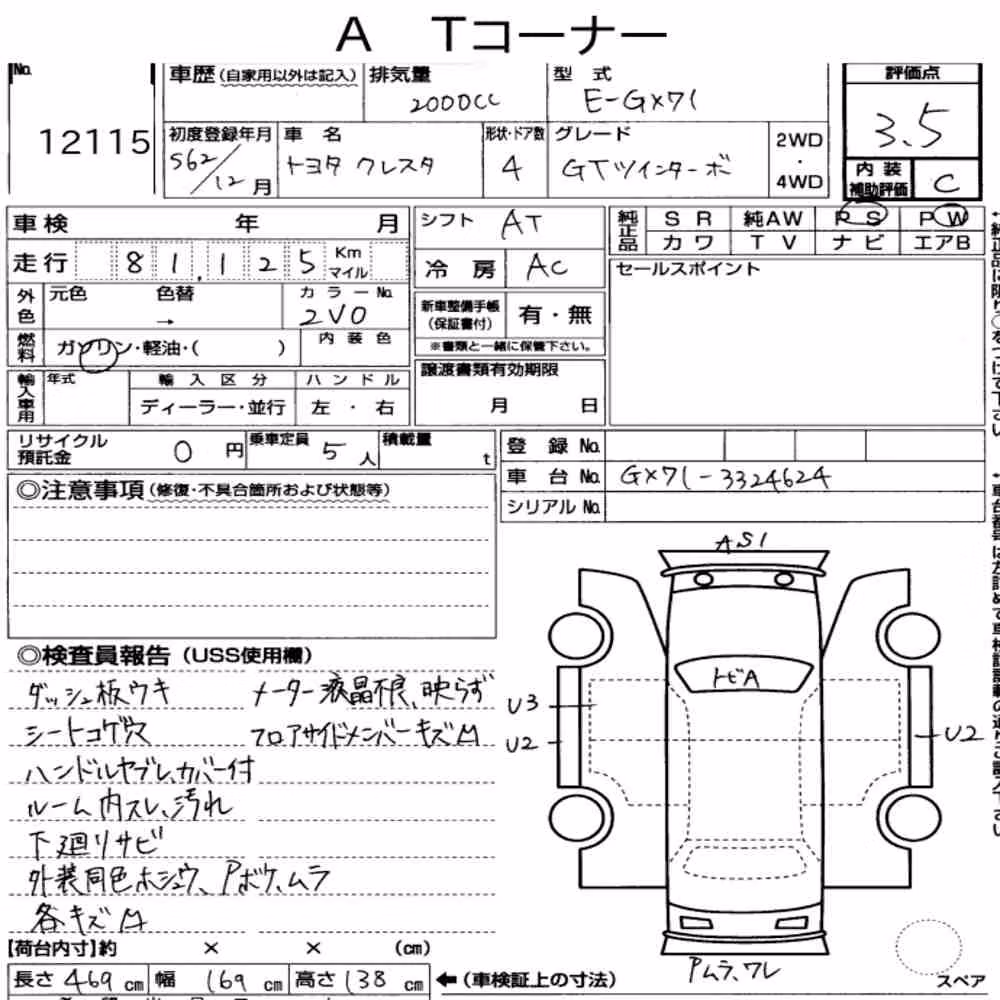 A Tコーナー
No.
12115
車歴(自家用以外は記入)
排気量
2000CC
型 式
E-GX71
評価点
3.5
内 装
補助評価
C
初度登録年月
S62/12月
車 名
トヨタ クレスタ
形状・ドア数
4
グレード
GTツインターボ
2WD
・
4WD
車検 年 月
走行 81,125 Km
マイル
外色
元色 色替
→
カラーNo.
2V0
燃料
ガソリン・軽油・( )
内装色
輸入車用
年式
輸入区分
ディーラー・並行
ハンドル
左・右
シフト AT
冷房 AC
新車整備手帳
(保証書付)
有・無
※書類と一緒に保管下さい。
譲渡書類有効期限
月 日
純正品
SR 純AW PS PW
カワ TV ナビ エアB
セールスポイント
リサイクル
預託金
0 円
乗車定員
5 人
積載量
t
登録No.
車台No. GX71-3324624
シリアルNo.
◎注意事項(修復・不具合箇所および状態等)
◎検査員報告(USS使用欄)
ダッシュ板ウキ メーター液晶不良、映らず
シートコゲ穴 フロアサイドメンバーキズM
ハンドルヤブレ、カバー付
ルーム内スレ、汚れ
下廻りサビ
外装同色ホシュウ、Pボケ、ムラ
各キズM
AS1
トビA
U3
U2
U2
Pムラ、ワレ
スペア
【荷台内寸】約 × × (cm)
長さ 469 cm 幅 169 cm 高さ 138 cm
←(車検証上の寸法)